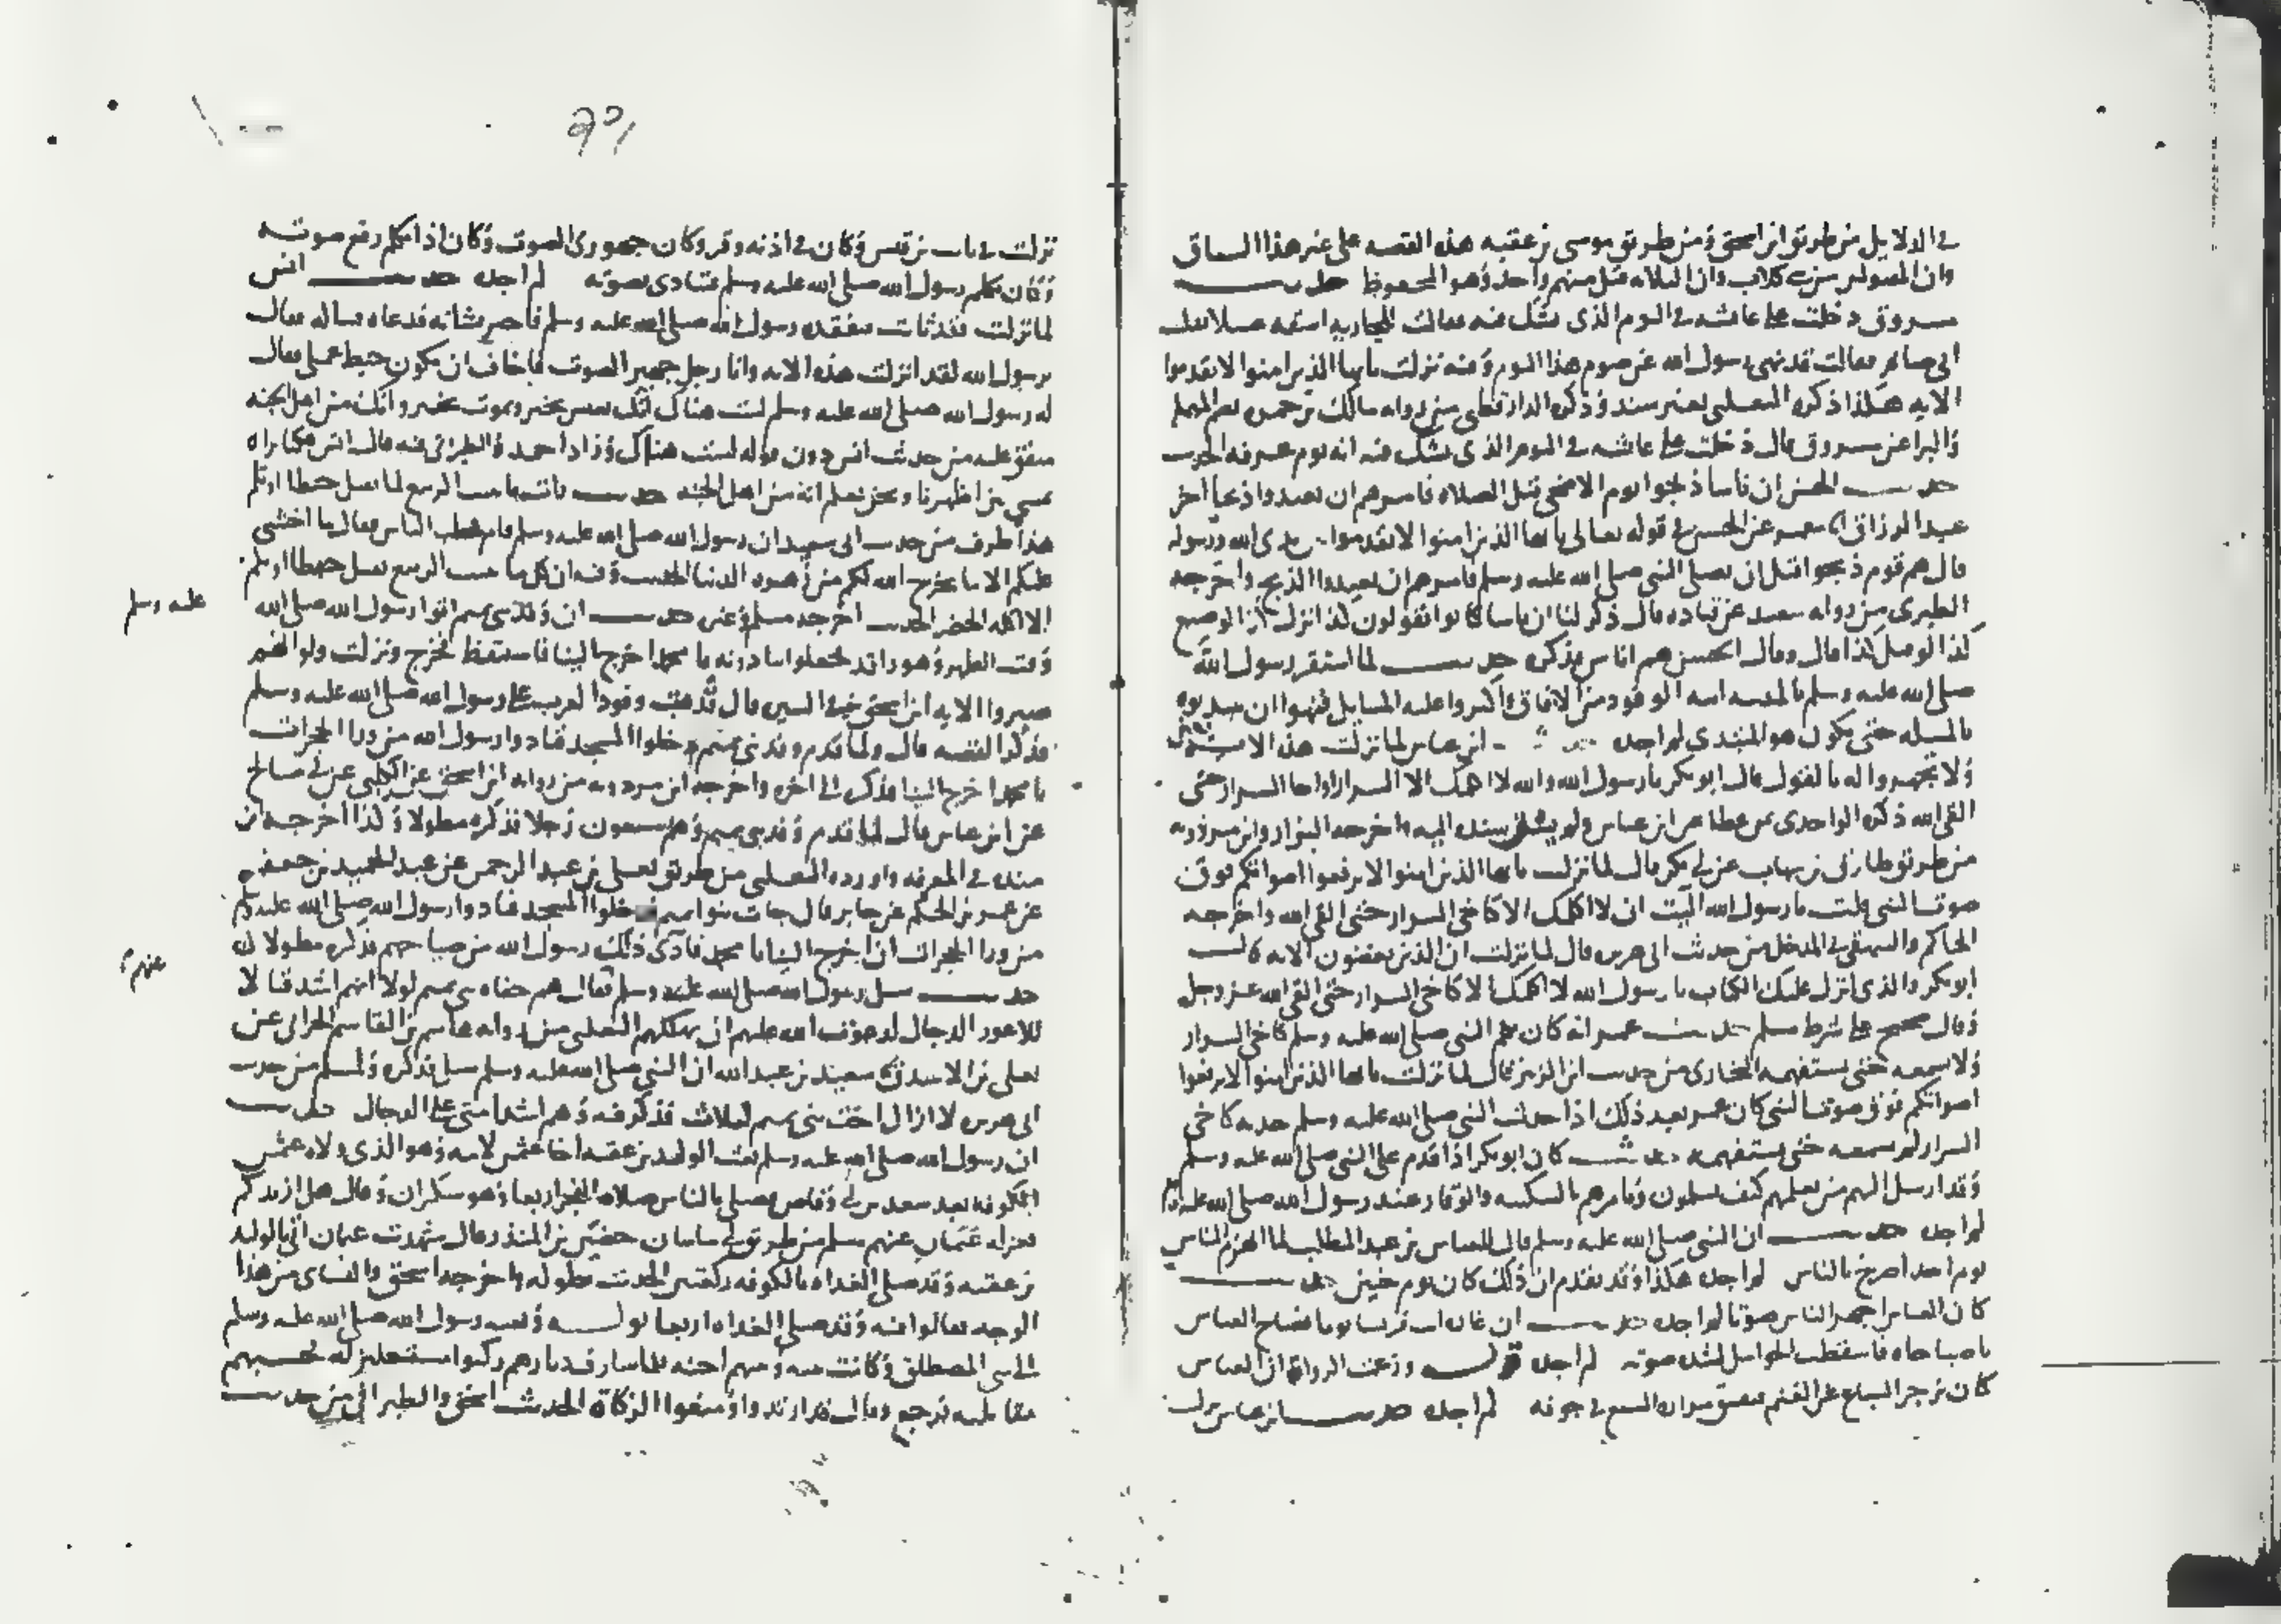 في الدلايل من طريق ابن اسحق ومن طريق موسى بن عقبه هذه القصه على غير هذا السياق
وان المصولين من بني كلاب وان الثلاثه قتل منهم واحد وهو المحفوظ حديث
مسروق دخلت على عايشه في اليوم الذي يشك فيه فقالت للجاريه اسقيه عسلا فقلت
اني صايم فقالت قد نهى رسول الله عن صوم هذا اليوم وفيه نزلت يايها الذين امنوا لا تقدموا
الايه هكذا ذكره الثعلبي بغير سند وذكره الدارقطني من روايه مالك بن حمزه
عن مسروق قال دخلت على عايشه في اليوم الذي يشك فيه انه يوم عرفه الحديث
حديث الحسن ان ناسا ذبحوا يوم الاضحى قبل الصلاه فامرهم ان يعيدوا ذبحا آخر
عبد الرزاق معمر عن الحسن في قوله تعالى يايها الذين امنوا لا تقدموا بين يدي الله ورسوله
قال هم قوم ذبحوا قبل ان يصلي النبي صلى الله عليه وسلم فامرهم ان يعيدوا الذبح واخرجه
الطبري من روايه سعيد عن قتاده قال ذكر لنا ان ناسا كانوا يقولون لو انزل
كذا لوصل كذا قال وقال الحسن هم اناس فذكره حديث لما استقر رسول الله
صلى الله عليه وسلم بالمدينه اتته الوفود من الافاق فاكثروا عليه المسايل فنهوا ان يبتدوه
بالمسيله حتى يكون هو المبتدي لم اجده ابن عباس لما نزلت هذه الايه
ولا تجهروا له بالقول قال ابو بكر يا رسول الله والله لا اكلمك الا السرار او اخا السرار حتى
القى الله ذكره الواحدي عن عطا عن ابن عباس ولم يسنده اليه واخرجه البزار وابن مردويه
من طريق طارق بن شهاب عن ابي بكر قال لما نزلت يايها الذين امنوا لا ترفعوا اصواتكم فوق
صوت النبي قلت يا رسول الله آليت ان لا اكلمك الا كاخي السرار حتى القى الله واخرجه
الحاكم والبيهقي في المدخل من حديث ابي هريره قال لما نزلت ان الذين يغضون الايه قال
ابو بكر والذي انزل عليك الكتاب يا رسول الله لا اكلمك الا كاخي السرار حتى القى الله عز وجل
وقال صحيح على شرط مسلم حديث عمر انه كان يكلم النبي صلى الله عليه وسلم كاخي السرار
ولا يسمعه حتى يستفهمه البخاري من حديث ابن الزبير قال لما نزلت يايها الذين امنوا لا ترفعوا
اصواتكم فوق صوت النبي كان عمر بعد ذلك اذا حدث النبي صلى الله عليه وسلم حدثه كاخي
السرار لم يسمعه حتى يستفهمه حديث كان ابو بكر اذا قدم على النبي صلى الله عليه وسلم
وفد ارسل اليهم من يعلمهم كيف يسلمون ويامرهم بالسكينه والوقار عند رسول الله صلى الله عليه وسلم
لم اجده حديث ان النبي صلى الله عليه وسلم قال للعباس بن عبد المطلب لما انهزم الناس
يوم احد اصرخ بالناس لم اجده هكذا وقد تقدم ان ذلك كان يوم حنين حديث
كان العباس اجهر الناس صوتا لم اجده حديث ان غاره اتت قريشا يوما فصاح العباس
يا صباحاه فاسقطت الحوامل لشده صوته لم اجده قوله وزعمت الرواة ان العباس
كان يزجر السباع عن الغنم فيفتق مراره السبع في جوفه لم اجده حديث ابن عباس نزلت
نزلت في ثابت بن قيس وكان في اذنه وقر وكان جهوري الصوت وكان اذا تكلم رفع صوته
وكان يكلم رسول الله صلى الله عليه وسلم فيتاذى بصوته لم اجده حديث انس
لما نزلت فقد ثابت فتفقده رسول الله صلى الله عليه وسلم فاخبر بشانه فدعاه فساله فقال
يرسول الله لقد انزلت هذه الايه وانا رجل جهير الصوت فاخاف ان يكون حبط عملي فقال
له رسول الله صلى الله عليه وسلم لست هناك انك تعيش بخير وتموت بخير وانك من اهل الجنه
متفق عليه من حديث انس دون قوله لست هناك وزاد احمد والطبراني فيه قال انس فكنا نراه
يمشي بين اظهرنا ونحن نعلم انه من اهل الجنه حديث وان مما ينبت الربيع لما يقتل حبطا او يلم
هذا طرف من حديث ابي سعيد ان رسول الله صلى الله عليه وسلم قام فخطب الناس فقال ما اخشى
عليكم الا ما يخرج الله لكم من زهره الدنيا الحديث وفيه ان كل ما ينبت الربيع يقتل حبطا او يلم
الا اكله الخضر الحديث اخرجه مسلم وغيره حديث ان وفد بني تميم اتوا رسول الله صلى الله
عليه وسلم
وقت الظهر وهو راقد فجعلوا ينادونه يا محمد اخرج الينا فاستيقظ فخرج ونزلت ولو انهم
صبروا الايه ابن اسحق في السير قال قدمت وفود العرب على رسول الله صلى الله عليه وسلم
فذكر القصه قال ولما قدم وفد بني تميم دخلوا المسجد فنادوا رسول الله من ورا الحجرات
يا محمد اخرج الينا فذكره الى اخره واخرجه ابن مردويه من روايه ابن اسحق عن الكلبي عن ابي صالح
عن ابن عباس قال لما قدم وفد بني تميم وهم سبعون رجلا فذكره مطولا وكذا اخرجه ابن
منده في المعرفه واورده الثعلبي من طريق يعلى بن عبد الرحمن عن عبد الحميد بن جعفر
عن عمر بن الحكم عن جابر قال جات بنو تميم فدخلوا المسجد فنادوا رسول الله صلى الله عليه وسلم
من ورا الحجرات ان اخرج الينا يا محمد فآذى ذلك رسول الله من صياحهم فذكره مطولا
عنهم
حديث سيل رسول الله صلى الله عليه وسلم فقال هم جفاه بني تميم لولا انهم اشد قتالا
للاعور الدجال لدعوت الله عليهم ان يهلكهم الثعلبي من روايه هاشم بن القاسم الحراني عن
يعلى بن الاشدق سعيد بن عبد الله ان النبي صلى الله عليه وسلم سيل فذكره ولمسلم من حديث
ابي هريره لا ازال احب بني تميم لثلاث فذكر فيه وهم اشد امتي على الدجال حديث
ان رسول الله صلى الله عليه وسلم بعث الوليد بن عقبه اخا عثمن لامه وهو الذي ولاه عثمن
الكوفه بعد سعد بن ابي وقاص فصلى بالناس صلاه الفجر اربعا وهو سكران وقال هل ازيدكم
فعزله عثمان عنهم مسلم من طريق ابي ساسان حضين بن المنذر قال شهدت عثمان اتي بالوليد
بن عقبه وقد صلى الغداه بالكوفه ركعتين الحديث بطوله واخرجه اسحق والنساي من هذا
الوجه فقالوا فيه وقد صلى الغداه اربعا قوله وبعثه رسول الله صلى الله عليه وسلم
الى بني المصطلق وكانت بينه وبينهم احنه فلما شارف ديارهم ركبوا مستقبلين له فحسبهم
مقاتليه فرجع وقال قد ارتدوا ومنعوا الزكاة الحديث اسحق والطبراني من حديث